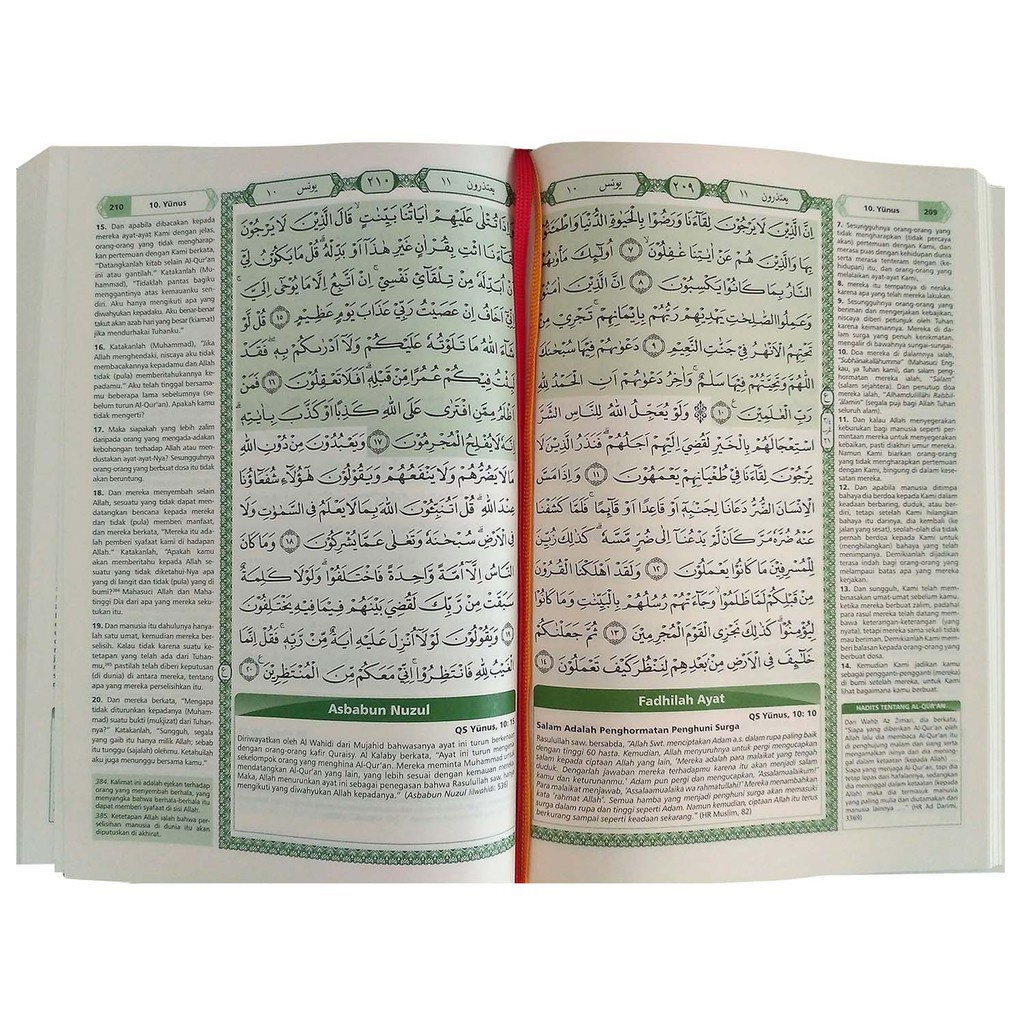 يعتذرون ١١
٢٠٩
يونس ١٠
اِنَّ الَّذِيْنَ لَا يَرْجُوْنَ لِقَاۤءَنَا وَرَضُوْا بِالْحَيٰوةِ الدُّنْيَا وَاطْمَـَٔنُّوْا
بِهَا وَالَّذِيْنَ هُمْ عَنْ اٰيٰتِنَا غٰفِلُوْنَۙ ٧ اُولٰۤىِٕكَ مَأْوٰىهُمُ
النَّارُ بِمَا كَانُوْا يَكْسِبُوْنَ ٨ اِنَّ الَّذِيْنَ اٰمَنُوْا
وَعَمِلُوا الصّٰلِحٰتِ يَهْدِيْهِمْ رَبُّهُمْ بِاِيْمَانِهِمْۚ تَجْرِيْ مِنْ
تَحْتِهِمُ الْاَنْهٰرُ فِيْ جَنّٰتِ النَّعِيْمِ ٩ دَعْوٰىهُمْ فِيْهَا سُبْحٰنَكَ
اللّٰهُمَّ وَتَحِيَّتُهُمْ فِيْهَا سَلٰمٌۚ وَاٰخِرُ دَعْوٰىهُمْ اَنِ الْحَمْدُ لِلّٰهِ
رَبِّ الْعٰلَمِيْنَ ࣖ ١٠ ۞ وَلَوْ يُعَجِّلُ اللّٰهُ لِلنَّاسِ الشَّرَّ
اسْتِعْجَالَهُمْ بِالْخَيْرِ لَقُضِيَ اِلَيْهِمْ اَجَلُهُمْۗ فَنَذَرُ الَّذِيْنَ لَا
يَرْجُوْنَ لِقَاۤءَنَا فِيْ طُغْيَانِهِمْ يَعْمَهُوْنَ ١١ وَاِذَا مَسَّ
الْاِنْسَانَ الضُّرُّ دَعَانَا لِجَنْۢبِهٖٓ اَوْ قَاعِدًا اَوْ قَاۤىِٕمًاۚ فَلَمَّا كَشَفْنَا
عَنْهُ ضُرَّهٗ مَرَّ كَاَنْ لَّمْ يَدْعُنَآ اِلٰى ضُرٍّ مَّسَّهٗۗ كَذٰلِكَ زُيِّنَ
لِلْمُسْرِفِيْنَ مَا كَانُوْا يَعْمَلُوْنَ ١٢ وَلَقَدْ اَهْلَكْنَا الْقُرُوْنَ
مِنْ قَبْلِكُمْ لَمَّا ظَلَمُوْاۙ وَجَاۤءَتْهُمْ رُسُلُهُمْ بِالْبَيِّنٰتِ وَمَا كَانُوْا
لِيُؤْمِنُوْاۗ كَذٰلِكَ نَجْزِى الْقَوْمَ الْمُجْرِمِيْنَ ١٣ ثُمَّ جَعَلْنٰكُمْ
خَلٰۤىِٕفَ فِى الْاَرْضِ مِنْۢ بَعْدِهِمْ لِنَنْظُرَ كَيْفَ تَعْمَلُوْنَ ١٤
Fadhilah Ayat
QS Yûnus, 10: 10
Salam Adalah Penghormatan Penghuni Surga
Rasulullah saw. bersabda, "Allah Swt. menciptakan Adam a.s. dalam rupa paling baik
dengan tinggi 60 hasta. Kemudian, Allah menyuruhnya untuk pergi mengucapkan
salam kepada ciptaan Allah yang lain, 'Mereka adalah para malaikat yang sedang
duduk. Dengarlah jawaban mereka terhadapmu karena itu akan menjadi salam
kamu dan keturunanmu.' Adam pun pergi dan mengucapkan, 'Assalamualaikum!'
Para malaikat menjawab, 'Assalamualaika wa rahmatullah!' Mereka menambahkan
kata 'rahmat Allah'. Semua hamba yang menjadi penghuni surga akan memasuki
surga dalam rupa dan tinggi seperti Adam. Namun kemudian, ciptaan Allah itu terus
berkurang sampai seperti keadaan sekarang." (HR Muslim, 82)
10. Yûnus 209
7. Sesungguhnya orang-orang yang
tidak mengharapkan (tidak percaya
akan) pertemuan dengan Kami, dan
merasa puas dengan kehidupan dunia
serta merasa tenteram dengan (ke-
hidupan) itu, dan orang-orang yang
melalaikan ayat-ayat Kami,
8. mereka itu tempatnya di neraka,
karena apa yang telah mereka lakukan.
9. Sesungguhnya orang-orang yang
beriman dan mengerjakan kebajikan,
niscaya diberi petunjuk oleh Tuhan
karena keimanannya. Mereka di da-
lam surga yang penuh kenikmatan,
mengalir di bawahnya sungai-sungai.
10. Doa mereka di dalamnya ialah,
"Subhânakallâhumma" (Mahasuci Eng-
kau, ya Tuhan kami), dan salam peng-
hormatan mereka ialah, "Salam"
(salam sejahtera). Dan penutup doa
mereka ialah, "Alhamdulillâhi Rabbil-
'âlamîn" (segala puji bagi Allah Tuhan
seluruh alam).
11. Dan kalau Allah menyegerakan
keburukan bagi manusia seperti per-
mintaan mereka untuk menyegerakan
kebaikan, pasti diakhiri umur mereka.
Namun Kami biarkan orang-orang
yang tidak mengharapkan pertemuan
dengan Kami, bingung di dalam kesesatan
mereka.
12. Dan apabila manusia ditimpa
bahaya dia berdoa kepada Kami dalam
keadaan berbaring, duduk, atau ber-
diri, tetapi setelah Kami hilangkan
bahaya itu darinya, dia kembali (ke
jalan yang sesat), seolah-olah dia tidak
pernah berdoa kepada Kami untuk
(menghilangkan) bahaya yang telah
menimpanya. Demikianlah dijadikan
terasa indah bagi orang-orang yang
melampaui batas apa yang mereka
kerjakan.
13. Dan sungguh, Kami telah mem-
binasakan umat-umat sebelum kamu,
ketika mereka berbuat zalim, padahal
para rasul mereka telah datang mem-
bawa keterangan-keterangan (yang
nyata), tetapi mereka sama sekali tidak
mau beriman. Demikianlah Kami mem-
beri balasan kepada orang-orang yang
berbuat dosa.
14. Kemudian Kami jadikan kamu
sebagai pengganti-pengganti (mereka)
di bumi setelah mereka, untuk Kami
lihat bagaimana kamu berbuat.
HADITS TENTANG AL-QUR'AN
Dari Wahb Az Zimari, dia berkata,
"Siapa yang diberikan Al-Qur'an
oleh Allah lalu dia membaca Al-Qur'an itu
di penghujung malam dan siang serta
mengamalkan isi dalamnya dan dia mening-
gal dalam ketaatan (kepada Allah)
Siapa yang menjaga Al-Qur'an, tapi dia
tetap lepas dari hafalannya, sedangkan
dia meninggal dalam ketaatan (kepada
Allah) maka dia termasuk manusia
yang paling mulia dan diutamakan dari
manusia lainnya." (HR Ad Darimi,
3369)
يعتذرون ١١
٢١٠
يونس ١٠
وَاِذَا تُتْلٰى عَلَيْهِمْ اٰيَاتُنَا بَيِّنٰتٍۙ قَالَ الَّذِيْنَ لَا يَرْجُوْنَ
لِقَاۤءَنَا ائْتِ بِقُرْاٰنٍ غَيْرِ هٰذَآ اَوْ بَدِّلْهُۗ قُلْ مَا يَكُوْنُ لِيْٓ
اَنْ اُبَدِّلَهٗ مِنْ تِلْقَاۤئِ نَفْسِيْۚ اِنْ اَتَّبِعُ اِلَّا مَا يُوْحٰٓى اِلَيَّۚ
اِنِّيْٓ اَخَافُ اِنْ عَصَيْتُ رَبِّيْ عَذَابَ يَوْمٍ عَظِيْمٍ ١٥ قُلْ لَّوْ
شَاۤءَ اللّٰهُ مَا تَلَوْتُهٗ عَلَيْكُمْ وَلَآ اَدْرٰىكُمْ بِهٖۖ فَقَدْ
لَبِثْتُ فِيْكُمْ عُمُرًا مِّنْ قَبْلِهٖۗ اَفَلَا تَعْقِلُوْنَ ١٦ فَمَنْ
اَظْلَمُ مِمَّنِ افْتَرٰى عَلَى اللّٰهِ كَذِبًا اَوْ كَذَّبَ بِاٰيٰتِهٖۗ
اِنَّهٗ لَا يُفْلِحُ الْمُجْرِمُوْنَ ١٧ وَيَعْبُدُوْنَ مِنْ دُوْنِ اللّٰهِ
مَا لَا يَضُرُّهُمْ وَلَا يَنْفَعُهُمْ وَيَقُوْلُوْنَ هٰٓؤُلَاۤءِ شُفَعَاۤؤُنَا
عِنْدَ اللّٰهِۗ قُلْ اَتُنَبِّـُٔوْنَ اللّٰهَ بِمَا لَا يَعْلَمُ فِى السَّمٰوٰتِ وَلَا
فِى الْاَرْضِۗ سُبْحٰنَهٗ وَتَعٰلٰى عَمَّا يُشْرِكُوْنَ ١٨ وَمَا كَانَ
النَّاسُ اِلَّآ اُمَّةً وَّاحِدَةً فَاخْتَلَفُوْاۗ وَلَوْلَا كَلِمَةٌ
سَبَقَتْ مِنْ رَّبِّكَ لَقُضِيَ بَيْنَهُمْ فِيْمَا فِيْهِ يَخْتَلِفُوْنَ
١٩ وَيَقُوْلُوْنَ لَوْلَآ اُنْزِلَ عَلَيْهِ اٰيَةٌ مِّنْ رَّبِّهٖۚ فَقُلْ اِنَّمَا
الْغَيْبُ لِلّٰهِ فَانْتَظِرُوْاۚ اِنِّيْ مَعَكُمْ مِّنَ الْمُنْتَظِرِيْنَ ࣖ ٢٠
Asbabun Nuzul
QS Yûnus, 10: 15
Diriwayatkan oleh Al Wahidi dari Mujahid bahwasanya ayat ini turun berkenaan
dengan orang-orang kafir Quraisy. Al Kalaby berkata, "Ayat ini turun mengenai
sekelompok orang yang menghina Al-Qur'an. Mereka meminta Muhammad untuk
mendatangkan Al-Qur'an yang lain, yang lebih sesuai dengan kemauan mereka.
Maka, Allah menurunkan ayat ini sebagai penegasan bahwa Rasulullah saw. hanya
mengikuti yang diwahyukan Allah kepadanya." (Asbabun Nuzul lilwahidi: 536)
210 10. Yûnus
15. Dan apabila dibacakan kepada
mereka ayat-ayat Kami dengan jelas,
orang-orang yang tidak mengharap-
kan pertemuan dengan Kami berkata,
"Datangkanlah kitab selain Al-Qur'an
ini atau gantilah." Katakanlah (Mu-
hammad), "Tidaklah pantas bagiku
menggantinya atas kemauanku sen-
diri. Aku hanya mengikuti apa yang
diwahyukan kepadaku. Aku benar-benar
takut akan azab hari yang besar (kiamat)
jika mendurhakai Tuhanku."
16. Katakanlah (Muhammad), "Jika
Allah menghendaki, niscaya aku tidak
membacakannya kepadamu dan Allah
tidak (pula) memberitahukannya ke-
padamu." Aku telah tinggal bersama-
mu beberapa lama sebelumnya (se-
belum turun Al-Qur'an). Apakah kamu
tidak mengerti?
17. Maka siapakah yang lebih zalim
daripada orang yang mengada-adakan
kebohongan terhadap Allah atau men-
dustakan ayat-ayat-Nya? Sesungguhnya
orang-orang yang berbuat dosa itu tidak
akan beruntung.
18. Dan mereka menyembah selain
Allah, sesuatu yang tidak dapat men-
datangkan bencana kepada mereka
dan tidak (pula) memberi manfaat,
dan mereka berkata, "Mereka itu ada-
lah pemberi syafaat kami di hadapan
Allah." Katakanlah, "Apakah kamu
akan memberitahu kepada Allah se-
suatu yang tidak diketahui-Nya apa
yang di langit dan tidak (pula) yang di
bumi?"³⁸⁴ Mahasuci Allah dan Maha-
tinggi Dia dari apa yang mereka seku-
tukan itu.
19. Dan manusia itu dahulunya hanya-
lah satu umat, kemudian mereka ber-
selisih. Kalau tidak karena suatu ke-
tetapan yang telah ada dari Tuhan-
mu,³⁸⁵ pastilah telah diberi keputusan
(di dunia) di antara mereka, tentang
apa yang mereka perselisihkan itu.
20. Dan mereka berkata, "Mengapa
tidak diturunkan kepadanya (Muham-
mad) suatu bukti (mukjizat) dari Tuhan-
nya?" Katakanlah, "Sungguh, segala
yang gaib itu hanya milik Allah; sebab
itu tunggu (sajalah) olehmu. Ketahuilah
aku juga menunggu bersama kamu."
384. Kalimat ini adalah ejekan terhadap
orang yang menyembah berhala, yang
menyangka bahwa berhala-berhala itu
dapat memberi syafaat di sisi Allah.
385. Ketetapan Allah ialah bahwa per-
selisihan manusia di dunia itu akan
diputuskan di akhirat.